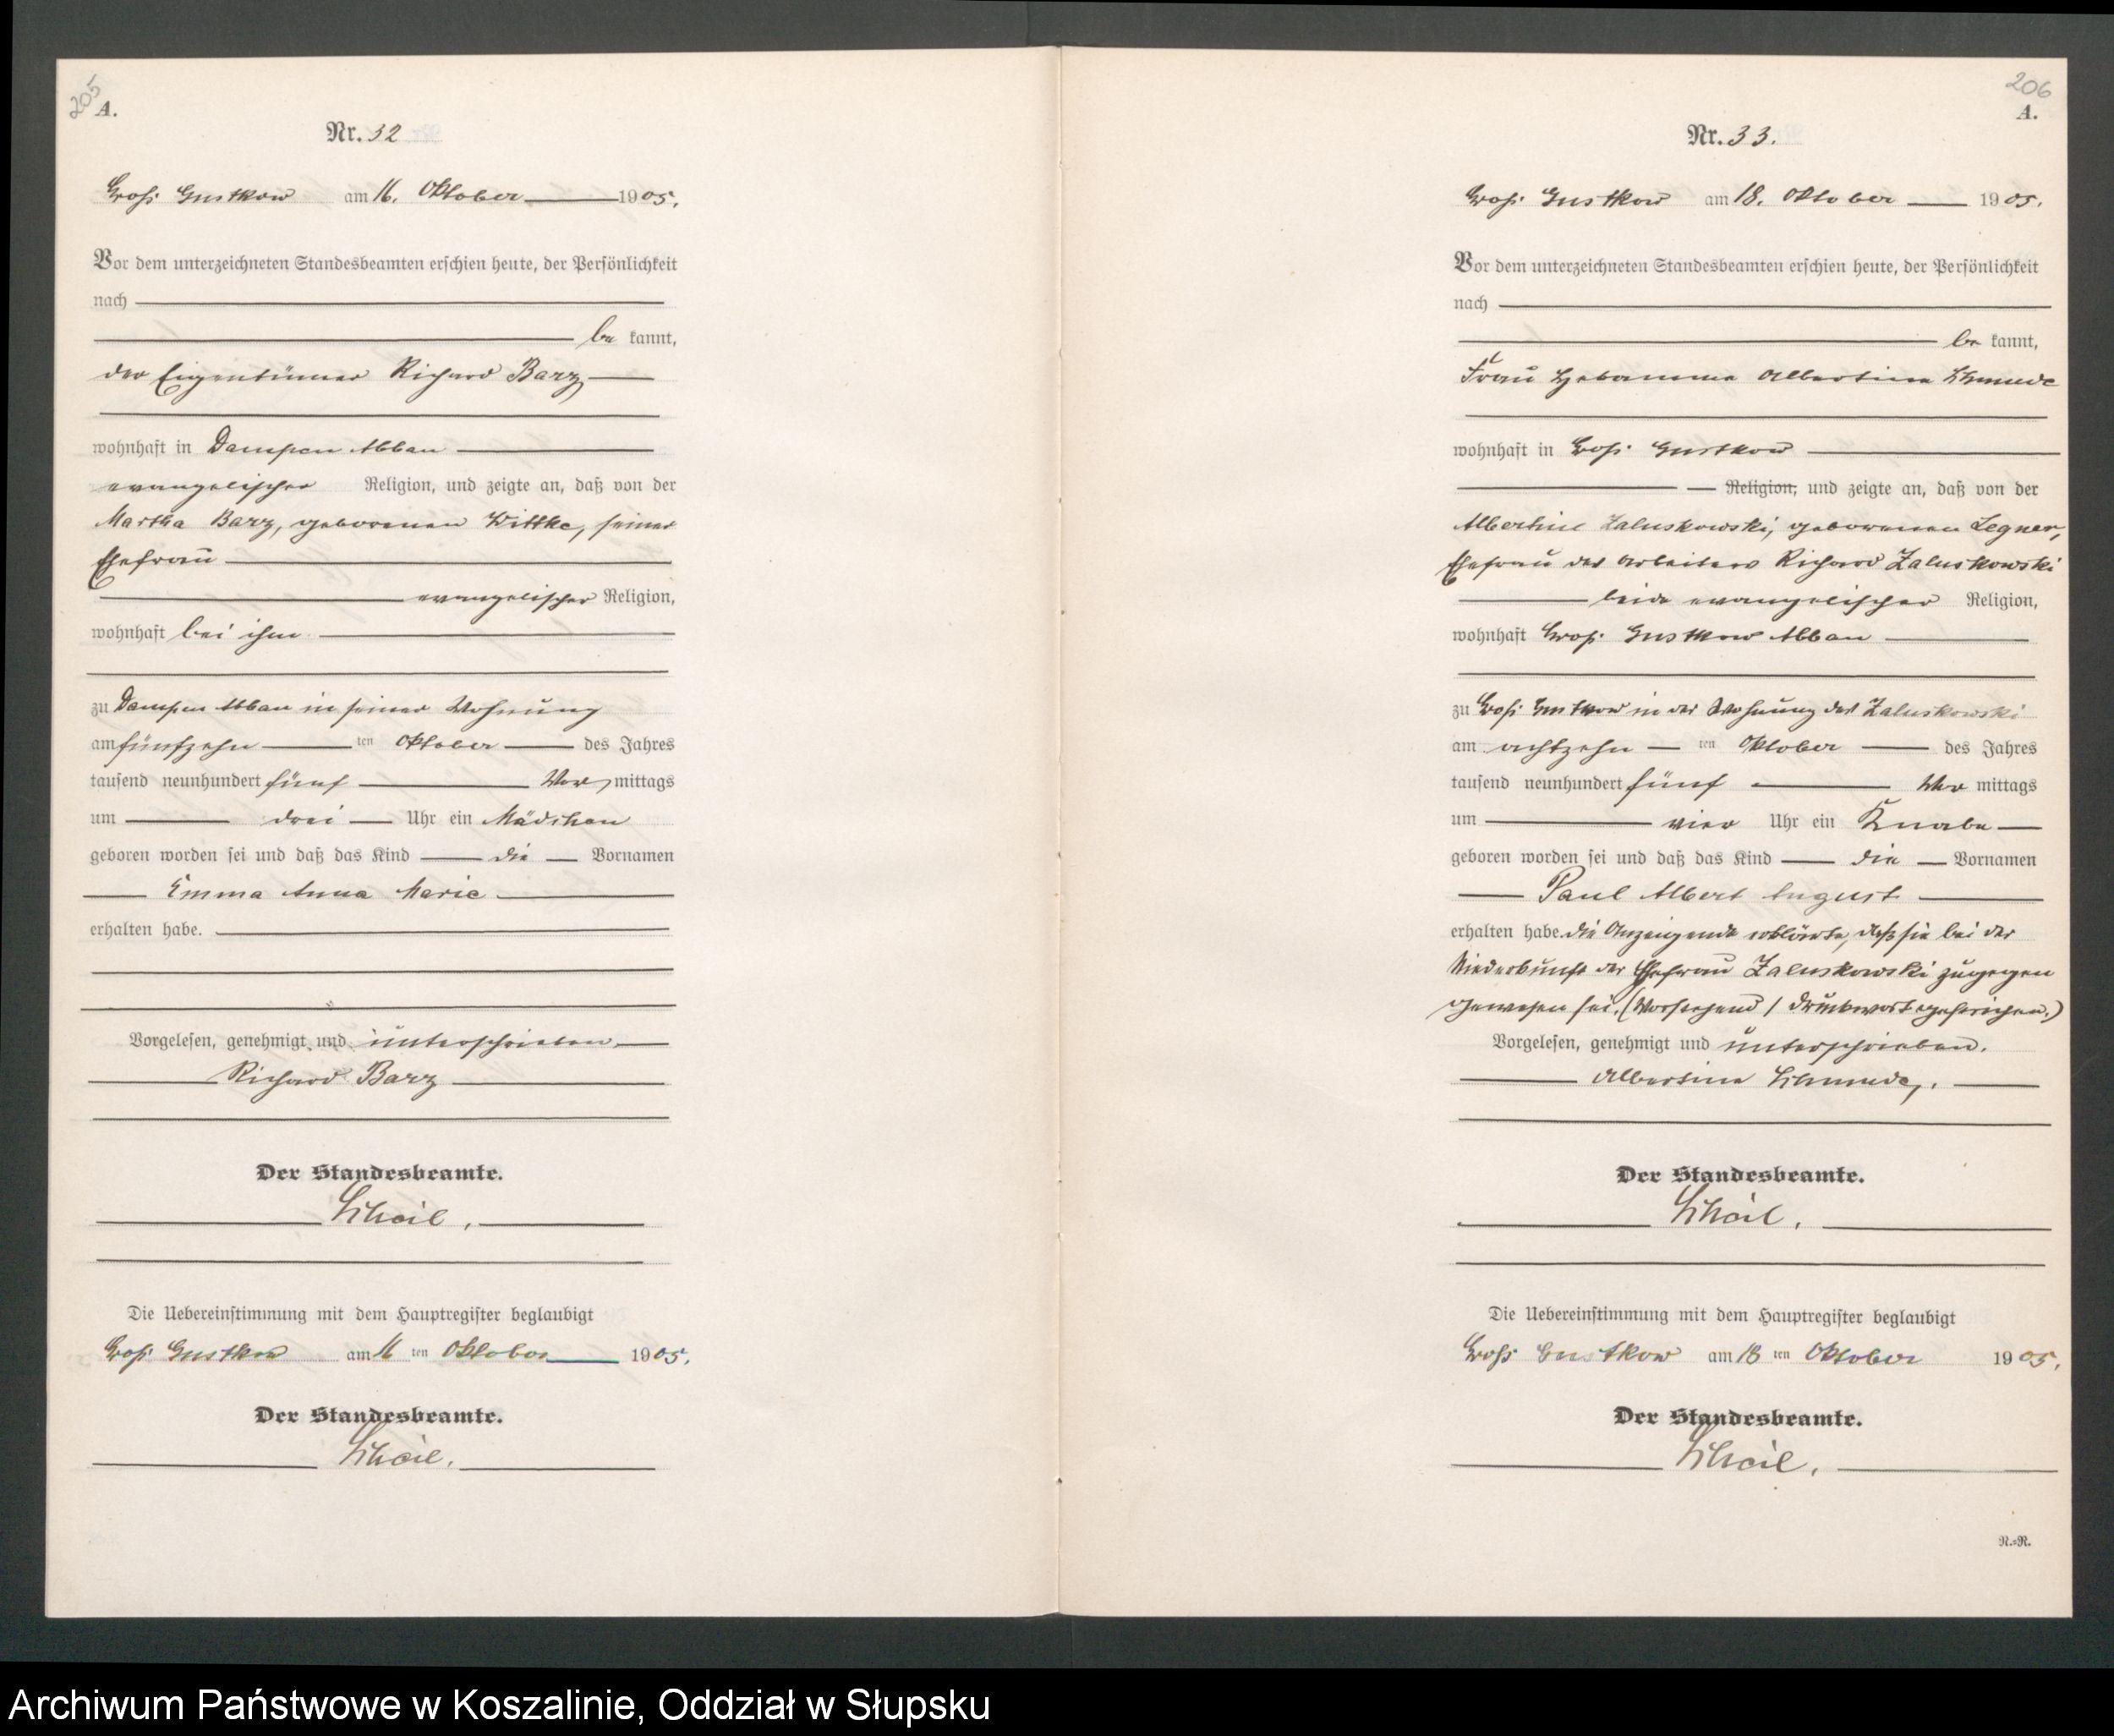 205
A.
Nr. 32
Groß Gustkow am 16. Oktober 1905.
Vor dem unterzeichneten Standesbeamten erschien heute, der Persönlichkeit
nach
be kannt,
der Eigentümer Richard Barz
wohnhaft in Dampen Abbau
evangelischer Religion, und zeigte an, daß von der
Martha Barz, geborenen Wittke, seiner
Ehefrau
evangelischer Religion,
wohnhaft bei ihm
zu Dampen Abbau in seiner Wohnung
am fünfzehn ten Oktober des Jahres
tausend neunhundert fünf Vor mittags
um drei Uhr ein Mädchen
geboren worden sei und daß das Kind die Vornamen
Emma Anna Marie
erhalten habe.
Vorgelesen, genehmigt und unterschrieben.
Richard Barz
Der Standesbeamte.
Die Uebereinstimmung mit dem Hauptregister beglaubigt
Groß Gustkow am 16 ten Oktober 1905.
Der Standesbeamte.
206
A.
Nr. 33.
Groß Gustkow am 18. Oktober 1905.
Vor dem unterzeichneten Standesbeamten erschien heute, der Persönlichkeit
nach
be kannt,
Frau Hebamme Albertine
wohnhaft in Groß Gustkow
Religion, und zeigte an, daß von der
Albertine Zaluskowski, geborenen Legner,
Ehefrau des Arbeiters Richard Zaluskowski
beide evangelischer Religion,
wohnhaft Groß Gustkow Abbau
zu Groß Gustkow in der Wohnung des Zaluskowski
am achtzehn ten Oktober des Jahres
tausend neunhundert fünf Vor mittags
um vier Uhr ein Knabe
geboren worden sei und daß das Kind die Vornamen
Paul Albert August
erhalten habe. Die Anzeigende erklärte, daß sie bei der
Niederkunft der Ehefrau Zaluskowski zugegen
gewesen sei. (Vorstehend 1 Druckwort gestrichen.)
Vorgelesen, genehmigt und unterschrieben.
Albertine
Der Standesbeamte.
Die Uebereinstimmung mit dem Hauptregister beglaubigt
Groß Gustkow am 18 ten Oktober 1905.
Der Standesbeamte.
R.=R.
Archiwum Państwowe w Koszalinie, Oddział w Słupsku